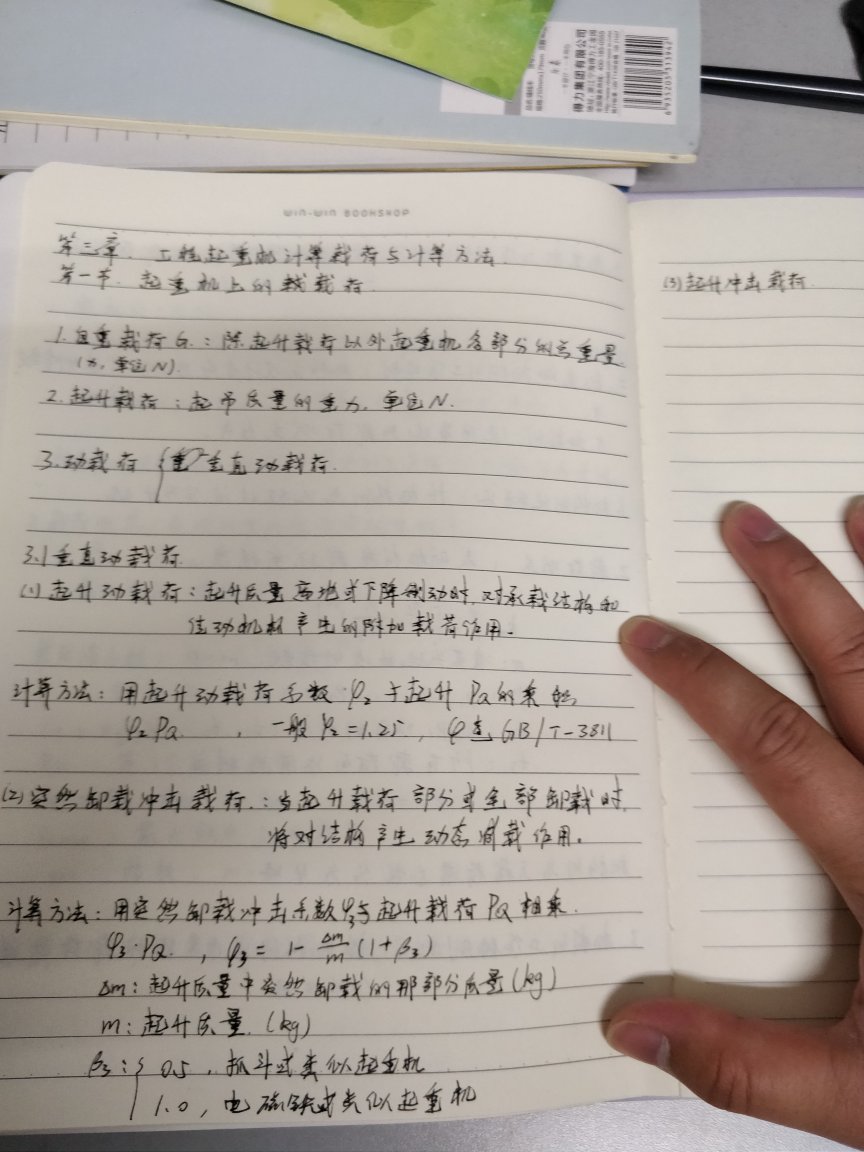 得力集团有限公司
6935205313942
WIN-WIN BOOKSHOP
第三章. 工程起重机计算载荷与计算方法
第一节. 起重机上的载载荷.
1. 自重载荷G.: 除起升载荷以外起重机各部分的总重量
(力, 单位N).
2. 起升载荷: 起吊质量的重力, 单位N.
3. 动载荷 { 垂直动载荷.
3.1 垂直动载荷
(1) 起升动载荷: 起升质量离地或下降制动时, 对承载结构和
传动机构产生的附加载荷作用.
计算方法: 用起升动载荷系数 φ₂ 与起升 PQ的乘积
φ₂PQ , 一般 φ₂=1.25, φ查 GB/T-3811
(2) 突然卸载冲击载荷.: 当起升载荷部分或全部卸载时,
将对结构产生动态减载作用.
计算方法: 用突然卸载冲击系数φ₃与起升载荷PQ相乘.
φ₃·PQ , φ₃ = 1- Δm/m (1+β₃)
Δm: 起升质量中突然卸载的那部分质量(kg)
m: 起升质量. (kg)
β₃: { 0.5, 抓斗或类似起重机
1.0, 电磁铁或类似起重机
(3) 起升冲击载荷.